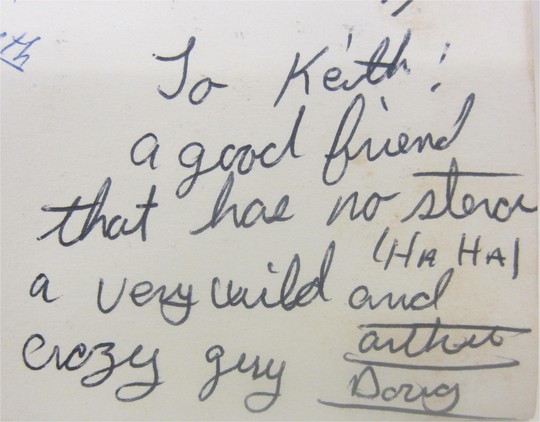 To Keith:
a good friend
that has no
(HA HA)
a very wild and
crazy guy arthur
Doug